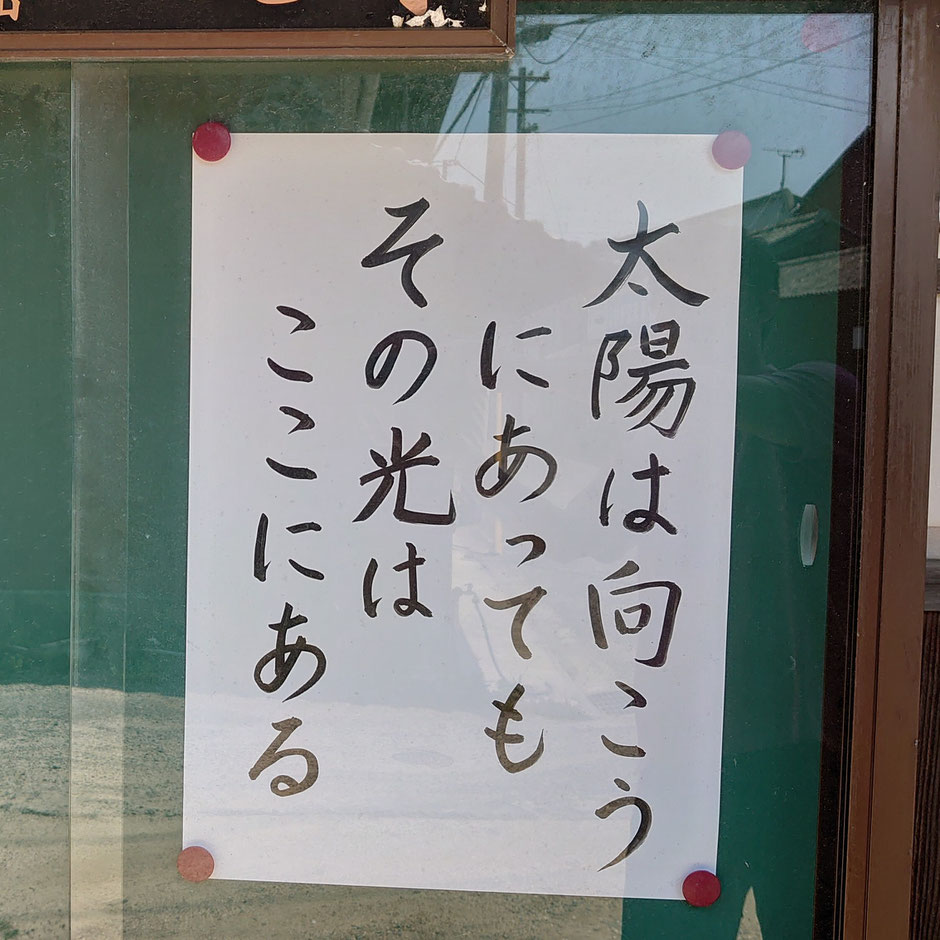 太陽は向こう
にあっても
その光は
ここにある